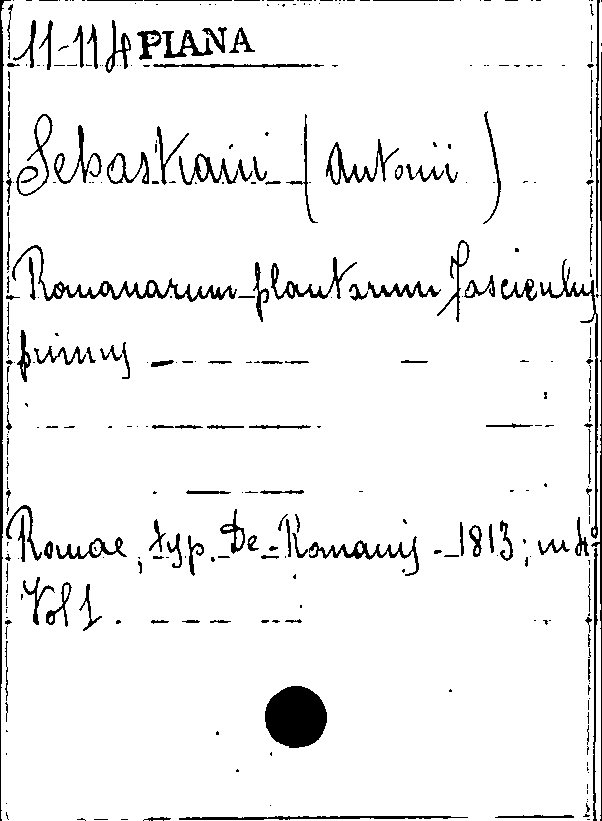 11-11 4 PIANA
Sebastiani (Antonii)
Romanarum plantarum fasciculus
primus —
Romae, typ. De-Romanis - 1813; in 4°
Vol 1.